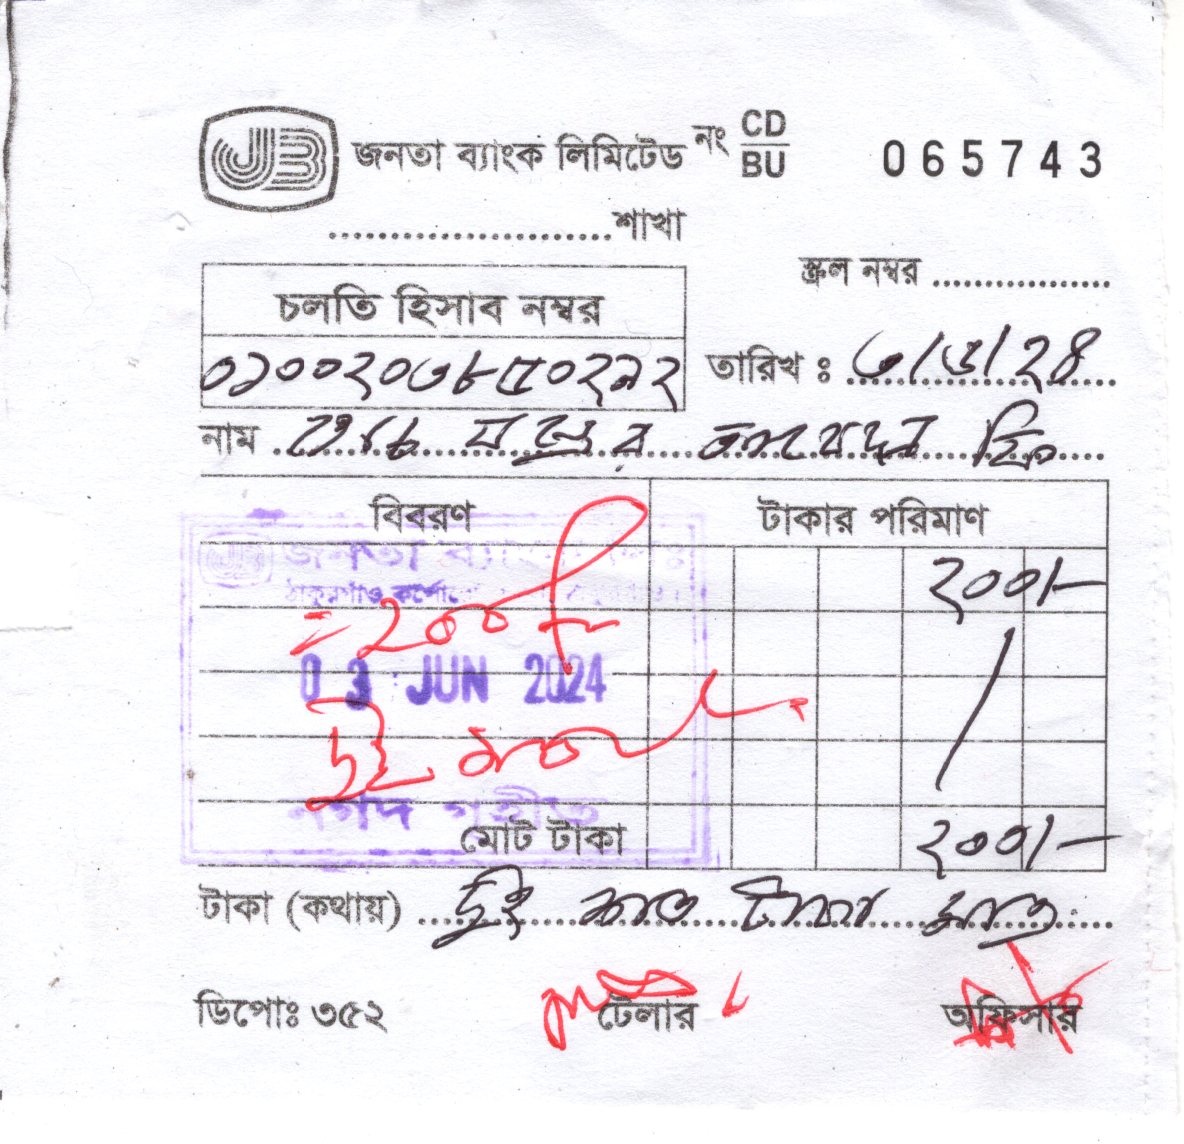 JB জনতা ব্যাংক লিমিটেড নং CD/BU 065743
........................শাখা
স্ক্রল নম্বর ................
চলতি হিসাব নম্বর
০১০০২০৩৮৫০২৯২
তারিখ : ৩/৬/২৪
নাম আবেদন ফি
বিবরণ টাকার পরিমাণ
জনতা ব্যাংক
ঠাকুরগাঁও কর্পোরেট
২০০/-
= ২০০/-
03 JUN 2024
দুই শত
নগদ গৃহীত
মোট টাকা ২০০/-
টাকা (কথায়) দুই শত টাকা মাত্র
ডিপোঃ ৩৫২ টেলার অফিসার